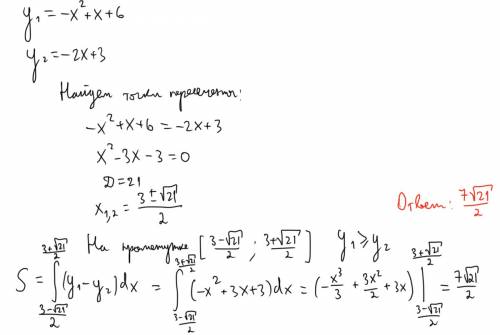 y₁ = -x² + x + 6
y₂ = -2x + 3
Найдем точки пересечения:
-x² + x + 6 = -2x + 3
x² - 3x - 3 = 0
D = 21
x₁,₂ = (3 ± √21)/2
Ответ: 7√21/2
На промежутке [(3-√21)/2 ; (3+√21)/2] y₁ ⩾ y₂
S = ∫_{(3-√21)/2}^{(3+√21)/2} (y₁ - y₂)dx = ∫_{(3-√21)/2}^{(3+√21)/2} (-x² + 3x + 3)dx = (-x³/3 + 3x²/2 + 3x) |_{(3-√21)/2}^{(3+√21)/2} = 7√21/2